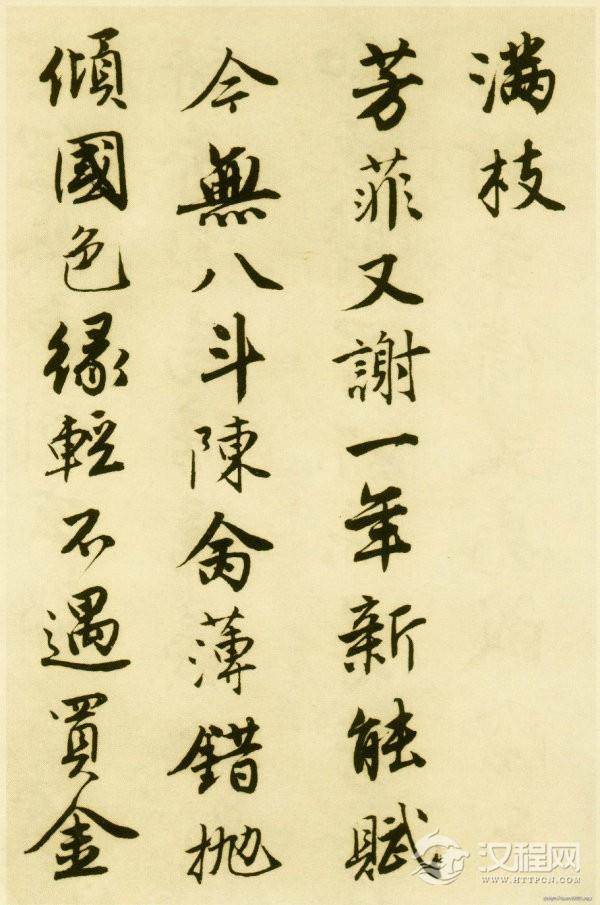 满枝
芳菲又謝一年新能賦
今無八斗陳命薄錯抛
傾國色緣輕不遇買金
汉程网
WWW.HTTPCN.COM